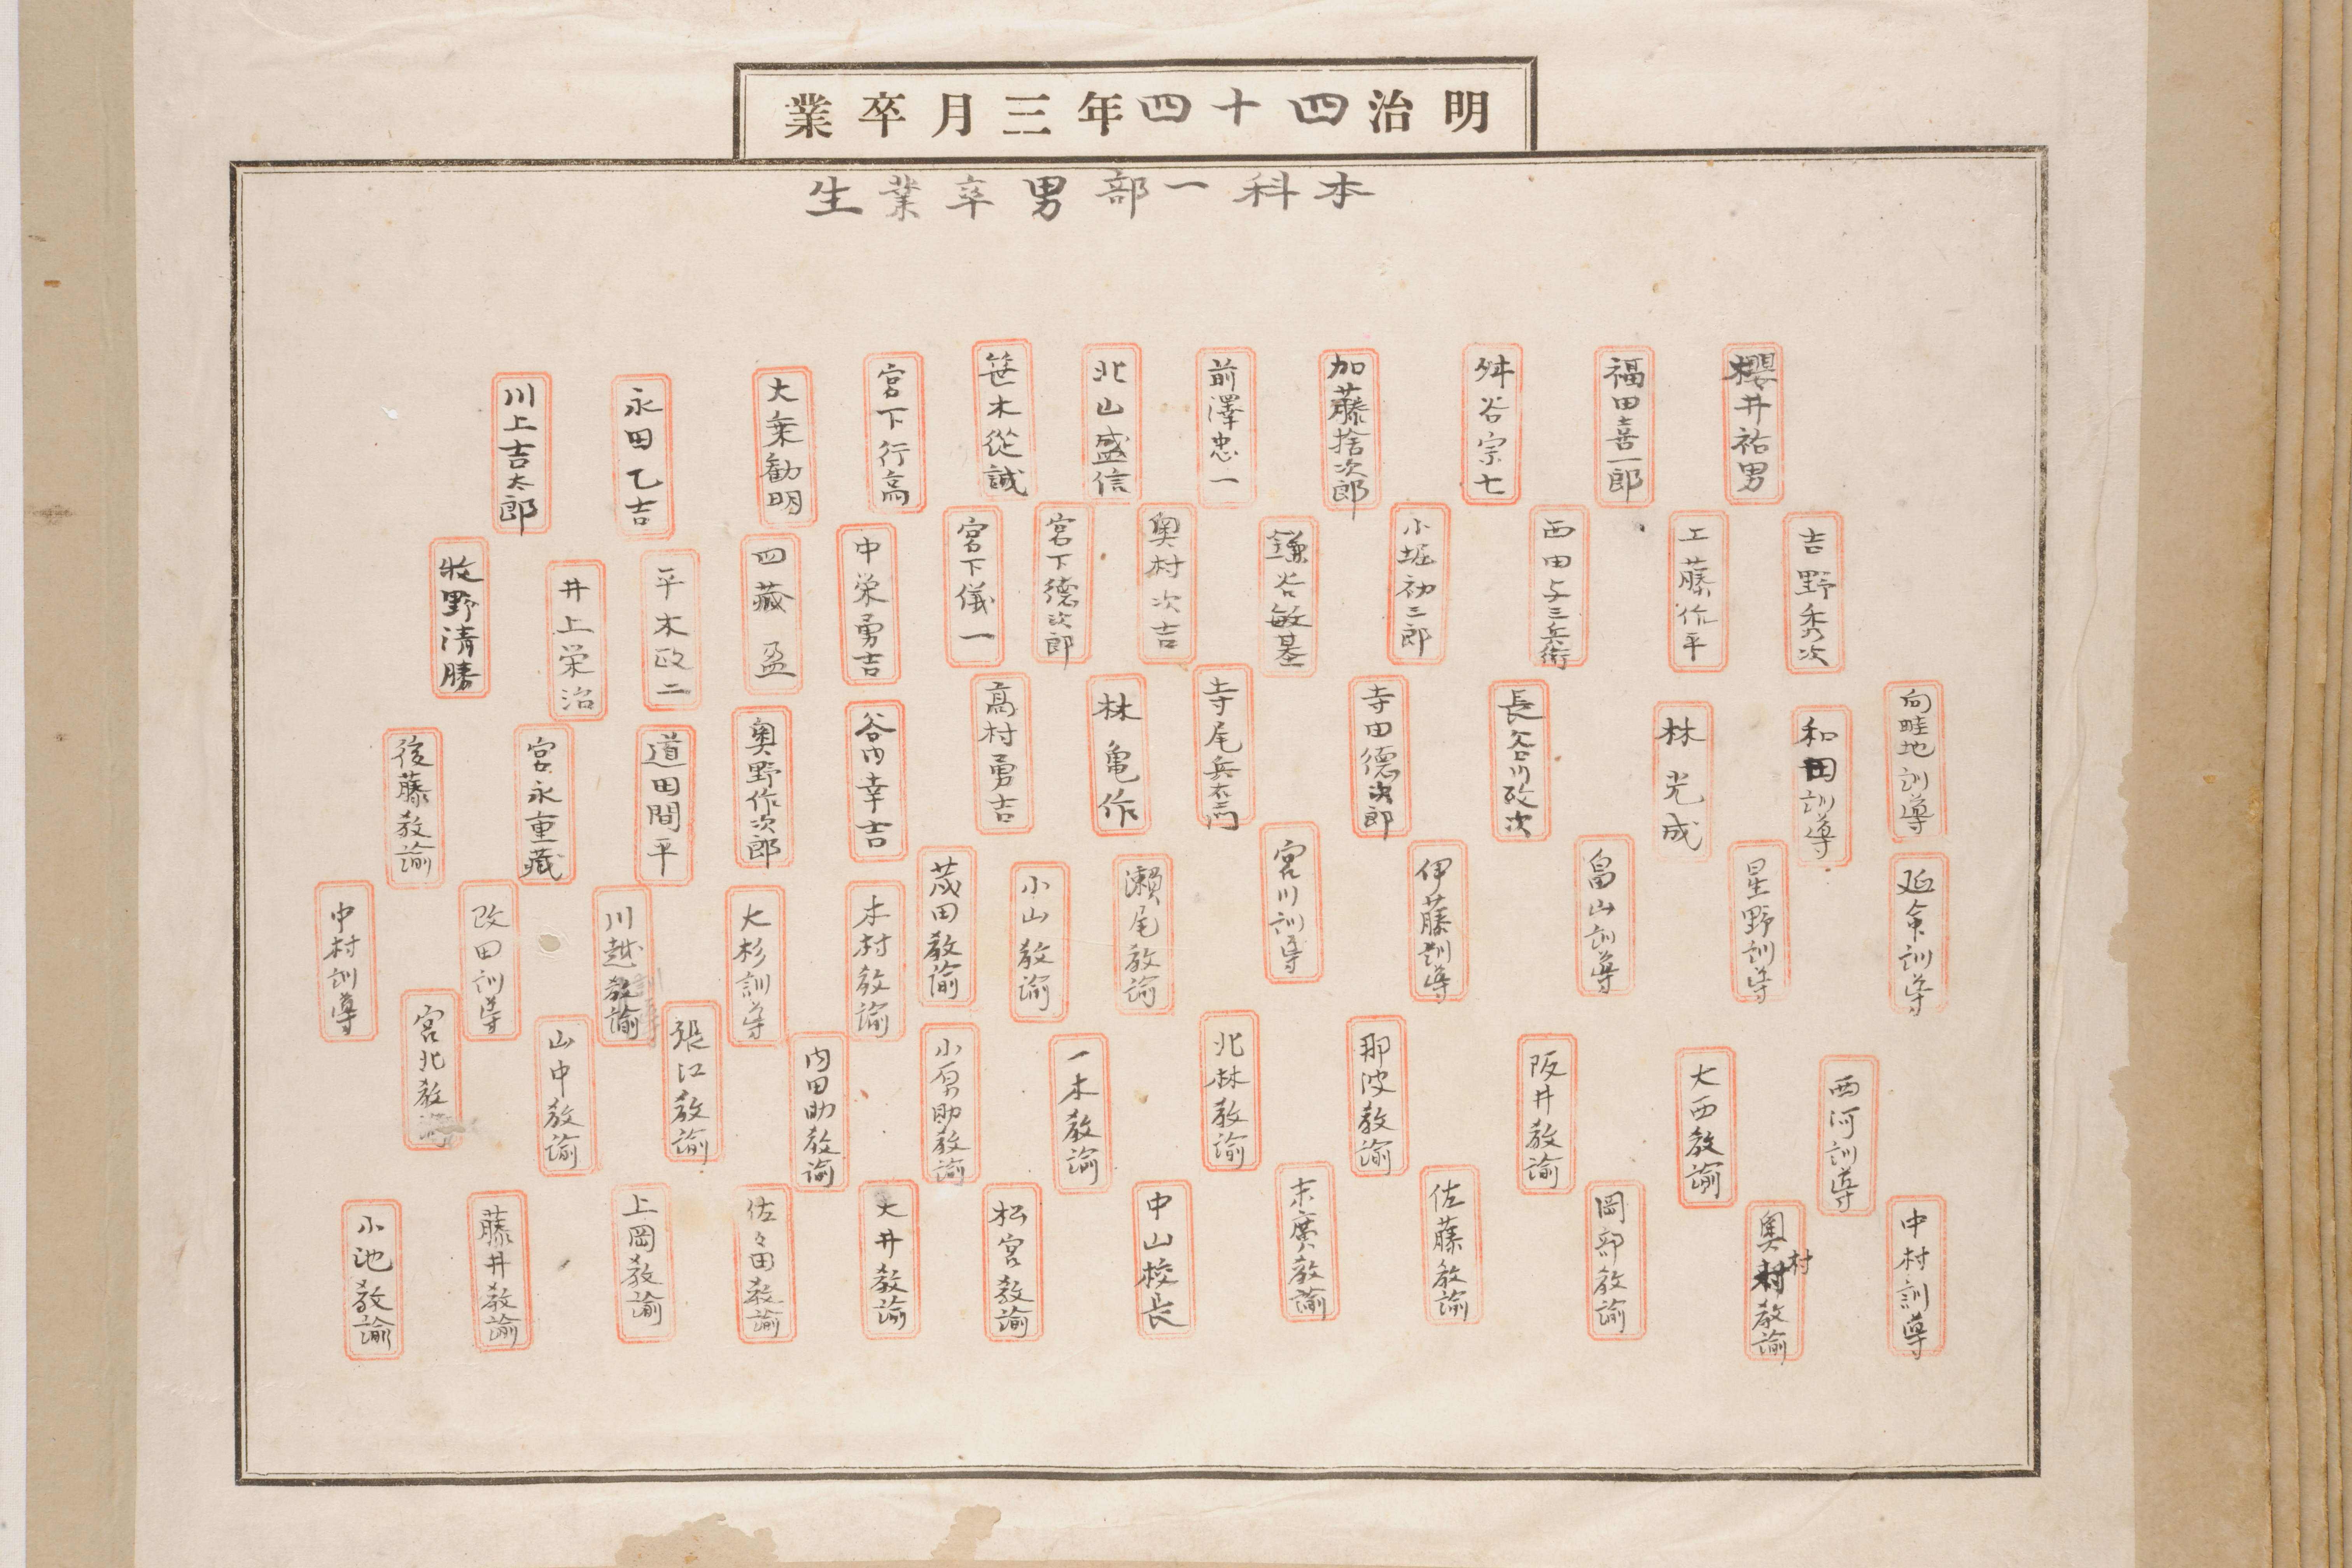 明治四十四年三月卒業
本科一部男卒業生
櫻井祐男
福田喜一郎
舛谷宗七
加藤捨次郎
前澤忠一
北山盛信
笹木從誠
宮下行高
大乗勧明
永田乙吉
川上吉太郎
吉野秀次
工藤作平
西田与三兵衛
小堀初三郎
鎌谷敏基
奥村次吉
宮下徳次郎
宮下儀一
中栄勇吉
四藏盈
平木政二
井上栄治
牧野清勝
向畦地訓導
和田訓導
林光成
長谷川政次
寺田德次郎
寺尾兵右エ門
林亀作
高村勇吉
谷内幸吉
奥野作次郎
道田間平
宮永重藏
後藤教諭
延命訓導
星野訓導
畠山訓導
伊藤訓導
宮川訓導
瀬尾教諭
小山教諭
茂田教諭
木村教諭
大杉訓導
川越教諭
改田訓導
中村訓導
西河訓導
大西教諭
阪井教諭
那波教諭
北林教諭
一木教諭
小原助教諭
内田助教諭
張江教諭
山中教諭
宮北教諭
中村訓導
奥村教諭
村
岡部教諭
佐藤教諭
末廣教諭
中山校長
松宮教諭
大井教諭
佐々田教諭
上岡教諭
藤井教諭
小池教諭